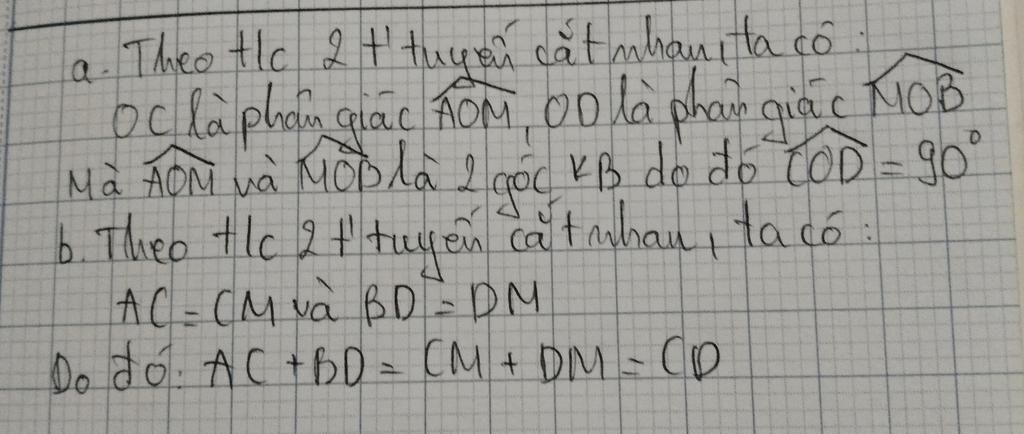 a. Theo t/c 2 t² tuyến cắt nhau, ta có:
OC là phân giác AOM, OD là phân giác MOB
Mà AOM và MOB là 2 góc KB do đó COD = 90°
b. Theo t/c 2 t² tuyến cắt nhau, ta có:
AC = CM và BD = DM
Do đó: AC + BD = CM + DM = CD